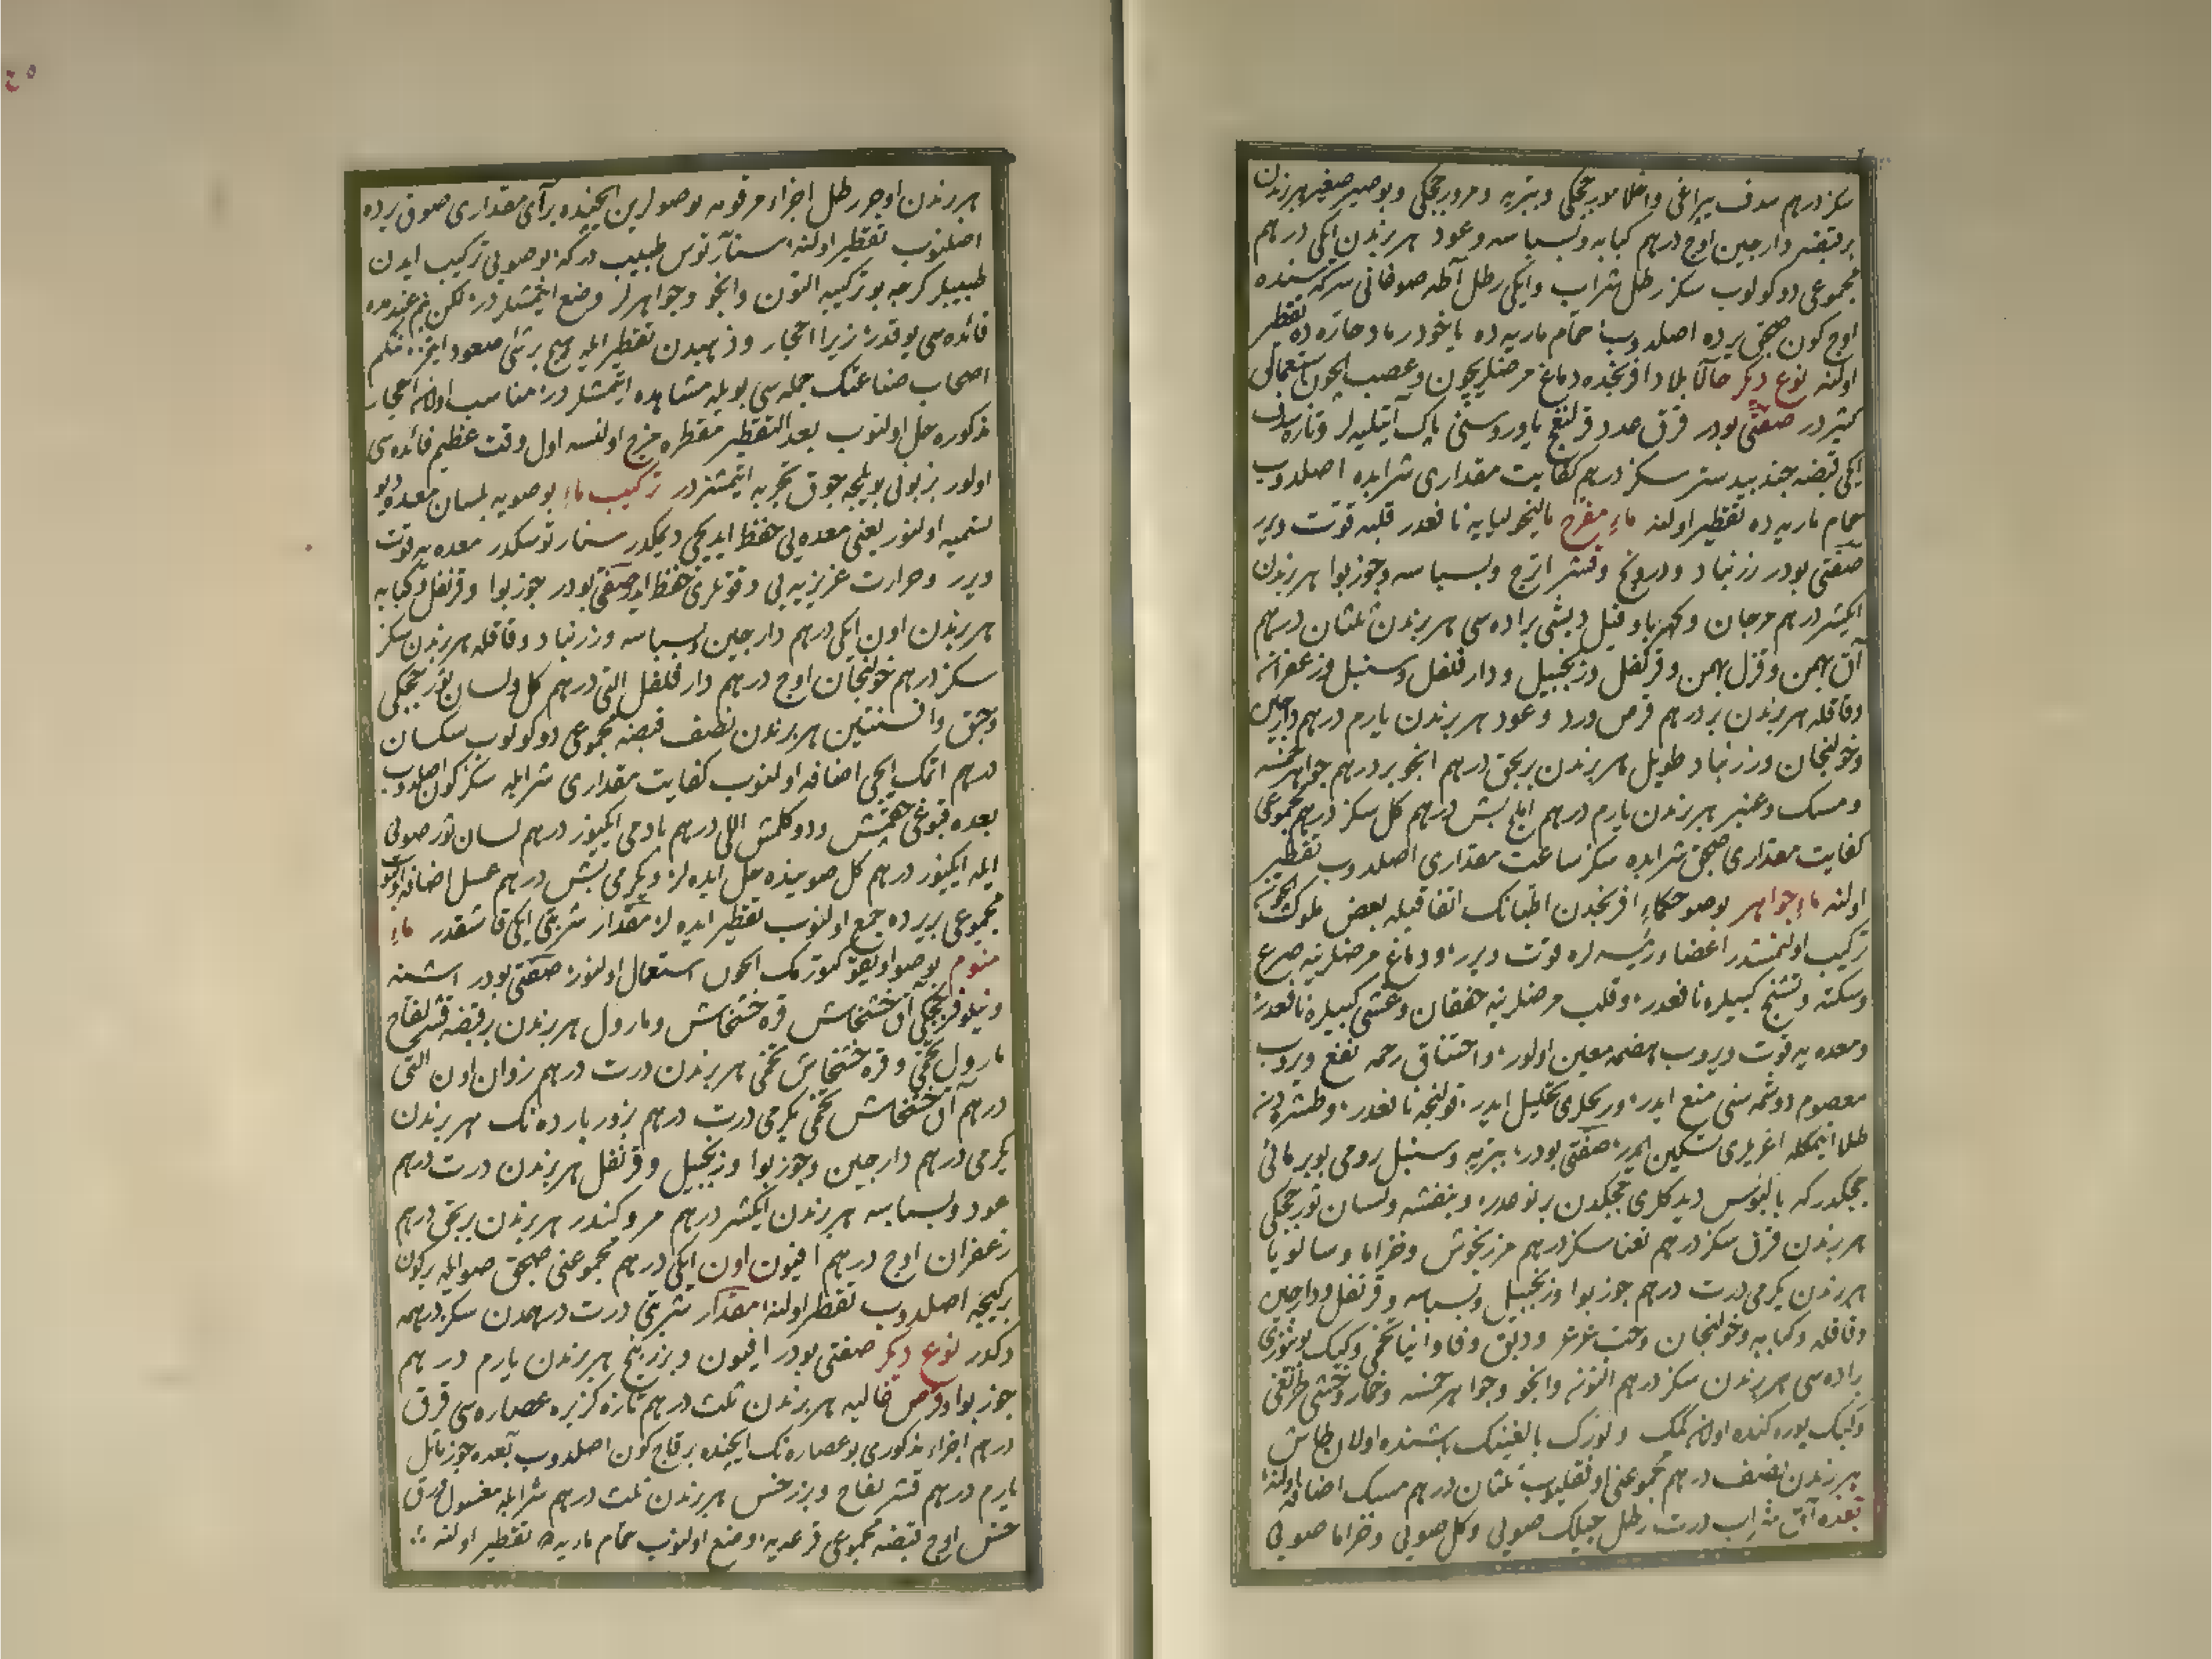 سکز درهم سدف یپراغی واخلامور چچکی و بتریه و مرور چچکی و بوصیر صغیر هربرندن
برقبضه دارچین اوچ درهم کبابه و بسباسه و عود هربرندن ایکی درهم
مجموعی دوکولوب سکز رطل شراب وایکی رطل آطه صوغانی سرکه سنده
اوچ کون صجق یرده اصلدوب حمام ماریه ده یاخود رماد حارّه ده تقطیر
اولنه نوع دیکر حالا بلاد افرنجده دماغ مرضلریچون و عصب ایچون استعمالی
کثیردر صفتی بودر قرق عدد قرلنغج یاوروسنی پاک آیتلیه لر وتازه سدف
ایکی قبضه جندبیدستر سکز درهم کفایت مقداری شرابده اصلدوب
حمام ماریه ده تقطیر اولنه ماء مفرح مالیخولیایه نافعدر قلبه قوّت ویرر
صفتی بودر زرنباد و درونج و قشر اترج و بسباسه و جوزبوا هربرندن
ایکیشر درهم مرجان و کهربا و فیل دیشی براده سی هربرندن ثلثان درهم
آق بهمن و قزل بهمن و قرنفل و زنجبیل و دارفلفل و سنبل و زعفران
وقاقله هربرندن بر درهم قرص ورد و عود هربرندن یارم درهم دارچین
وخولنجان و زرنباد طویل هربرندن بربچق درهم انجو بر درهم جواهر خمسه
و مسک و عنبر هربرندن یارم درهم بش درهم کل سکز درهم مجموعی
کفایت مقداری صجق شرابده سکز ساعت مقداری اصلدوب تقطیر
اولنه ماء جواهر بوصو حکماء افرنجدن اطبانک اتفاقیله بعض ملوک ایچون
ترکیب اولنمشدر اعضاء رئیسه لره قوت ویرر و دماغ مرضلرینه صرع
وسکته و تشنج کبیلره نافعدر و قلب مرضلرینه خفقان و غشی کبیلره نافعدر
ومعده یه قوت ویروب هضمه معین اولور و اختناق رحمه نفع ویروب
معصوم دوشمه سنی منع ایدر و ریحلری تحلیل ایدر قولنجه نافعدر و طشره دن
طلا ایتمکله اغریلری تسکین ایدر صفتی بودر بتریه و سنبل رومی بوبر مائی
چچکدر که بالبوس دیدکلری چچکدن برنوعدر و بنفشه و لسان ثور چچکی
هربرندن قرق سکز درهم نعنا سکز درهم مرزنجوش و خزاما و سالویا
هربرندن یکرمی درت درهم جوزبوا و زنجبیل و بسباسه و قرنفل و دارچین
وقاقله و کبابه و خولنجان و دبق و فاوانیا تخمی و کیک بوینوزی
براده سی هربرندن سکز درهم التون و انجو و جواهر خمسه و حمار وحشی طرنغی
وکیک یوره کنده اولان کمک و لورک بالغینک باشنده اولان طاش
هربرندن نصف درهم مجموعنی اوفقلیوب ثلثان درهم مسک اضافه اولنه
بعده آق شراب درت رطل چیلک صویی و کل صویی و خزاما صویی
هربرندن اوچر رطل اجزاء مرقومه بوصولرین ایچنده برآی مقداری صوق یرده
اصلنوب تقطیر اولنه سنآرتوس طبیب درکه بوصویی ترکیب ایدن
طبیبلر کرچه بوترکیبه التون وانجو وجواهرلر وضع ایتمشلردر لکن بنم عندمده
فائده سی یوقدر زیرا احجار و ذهبدن تقطیر ایله هیچ برشی صعود ایتمز
اصحاب صناعتک جمله سی بویله مشاهده ایتمشلردر مناسب اولان احجار
مذکوره حل اولنوب بعد التقطیر مقطره مزج اولنسه اول وقت عظیم فائده سی
اولور بزبونی بویلجه چوق تجربه ایتمشزدر ترکیب ماء بوصویه بلسان معده دیو
تسمیه اولنور یعنی معده یی حفظ ایدیجی دیمکدر سنارتوسکدر معده یه قوت
ویرر و حرارت غریزیه یی و قوتلری حفظ ایدر صفتی بودر جوزبوا و قرنفل و کبابه
هربرندن اون ایکی درهم دارچین و بسباسه و زرنباد و قاقله هربرندن سکز
سکز درهم خولنجان اوچ درهم دارفلفل التی درهم کل و لسان ثور چچکی
وحبق وافسنتین هربرندن نصف قبضه مجموعی دوکولوب سکسان
درهم اتمک ایچی اضافه اولنوب کفایت مقداری شرابله سکز کون اصلدوب
بعده قبوغی چقمش و دوکلمش اللی درهم بادمی ایکیوز درهم لسان ثور صویی
ایله ایکیوز درهم کل صوینده حل ایده لر و یکرمی بش درهم عسل اضافه
مجموعی بریرده جمع اولنوب تقطیر ایده لر مقدار شربتی ایکی قاشقدر ماء
منوم بوصو اویقو کتورمک ایچون استعمال اولنور صفتی بودر اشنه
ونیلوفر چچکی آق خشخاش قره خشخاش و مارول هربرندن برقبضه قشر لفاح
مارول تخمی و قره خشخاش تخمی هربرندن درت درهم زوان اون التی
درهم آق خشخاش تخمی یکرمی درت درهم بزور بارده نک هربرندن
یکرمی درهم دارچین و جوزبوا و زنجبیل و قرنفل هربرندن درت درهم
عود و بسباسه هربرندن ایکیشر درهم مر و کندر هربرندن بربچق درهم
زعفران اوچ درهم افیون اون ایکی درهم مجموعنی صجق صوایله برکون
برکیجه اصلدوب تقطیر اولنه مقدار شربتی درت درهمدن سکز درهمه
دکدر نوع دیکر صفتی بودر افیون و بزر بنج هربرندن یارم درهم
جوزبوا و قرص غالیه هربرندن ثلث درهم تازه کزبره عصاره سی قرق
درهم اجزاء مذکوری بوعصاره نک ایچنده برقاچ کون اصلدوب بعده جوز ماثل
یارم درهم قشر لفاح و بزر خس هربرندن ثلث درهم شرابله مغسول ورق
خس اوچ قبضه مجموعی قرعه یه وضع اولنوب حمام ماریه ده تقطیر اولنه